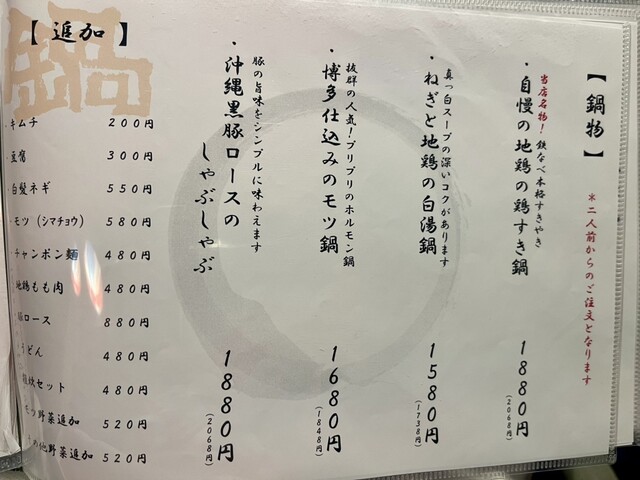 【鍋物】
＊二人前からのご注文となります
当店名物！鉄なべ本格すきやき
・自慢の地鶏の鶏すき鍋
1880円
(2068円)
真っ白スープの深いコクがあります
・ねぎと地鶏の白湯鍋
1580円
(1738円)
抜群の人気！プリプリのホルモン鍋
・博多仕込みのモツ鍋
1680円
(1848円)
豚の旨味をシンプルに味わえます
・沖縄黒豚ロースの
しゃぶしゃぶ
1880円
(2068円)
鍋
【追加】
・キムチ 200円
・豆腐 300円
・白髪ネギ 550円
・モツ（シマチョウ） 580円
・チャンポン麺 480円
地鶏もも肉 480円
豚ロース 880円
うどん 480円
セット 480円
野菜追加 520円
他野菜追加 520円